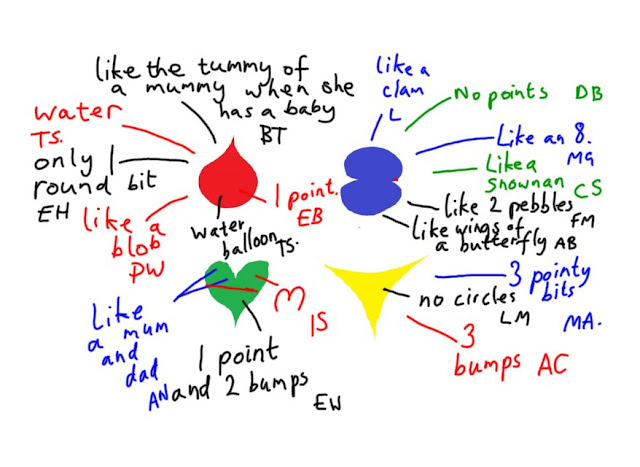 like the tummy of
a mummy when she
has a baby
BT
water
TS.
only 1
round bit
EH
like a
blob
PW
water
balloon TS.
1 point.
EB
like a
clam
L
No points DB
Like an 8.
MG
Like a
snowman CS
like 2 pebbles
FM
like wings of
a butterfly AB
Like
a mum
and
dad
AN
1 point
and 2 bumps
EW
m
IS
3 pointy
bits
MA.
no circles
LM
3
bumps AC